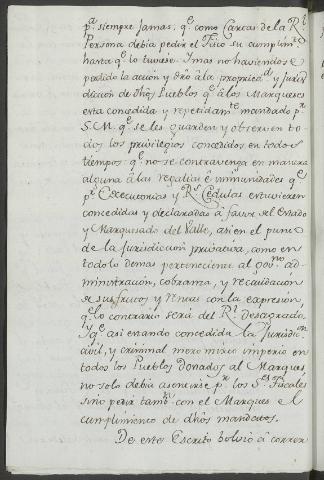 pᵃ siempre jamas, qᵉ como Cargas de la Rˡ
Persona debia pedir el Fisco su cumplimᵗᵒ
hasta qᵉ lo tuviese. Y mas no haviendose
perdido la acción y dro â la propriedᵈ y Juris-
diccion de dhos Pueblos qᵉ â los Marqueses
esta concedida y repetidamᵗᵉ mandado pʳ
S. M. qᵉ se les guarden y observen to-
dos los privilegios concedidos en todos
tiempos qᵉ no se contravenga en manera
alguna â las regalias è inmunidades qᵉ
pʳ Executorias y Rˢ Cedulas estuvieren
concedidas y declaradas â favor del Estado
y Marquesado del Valle, asi en el punto
de la Jurisdiccion privativa, como en
todo lo demas perteneciente al govⁿᵒ ad-
ministración, cobranza, y recaudacion
de sus frutos y rentas con la expresion,
qᵉ lo contrario será del Rˡ desagrado.
Y qᵉ asi estando concedida la Jurisdicⁿ
civil, y criminal mero mixto imperio en
todos los Pueblos Donados al Marques,
no solo debia asentirse pʳ los Sʳᵉˢ Fiscales
sino pedir tambⁿ con el Marques el
cumplimiento de dhos mandatos.
De este Escrito bolvió â correr